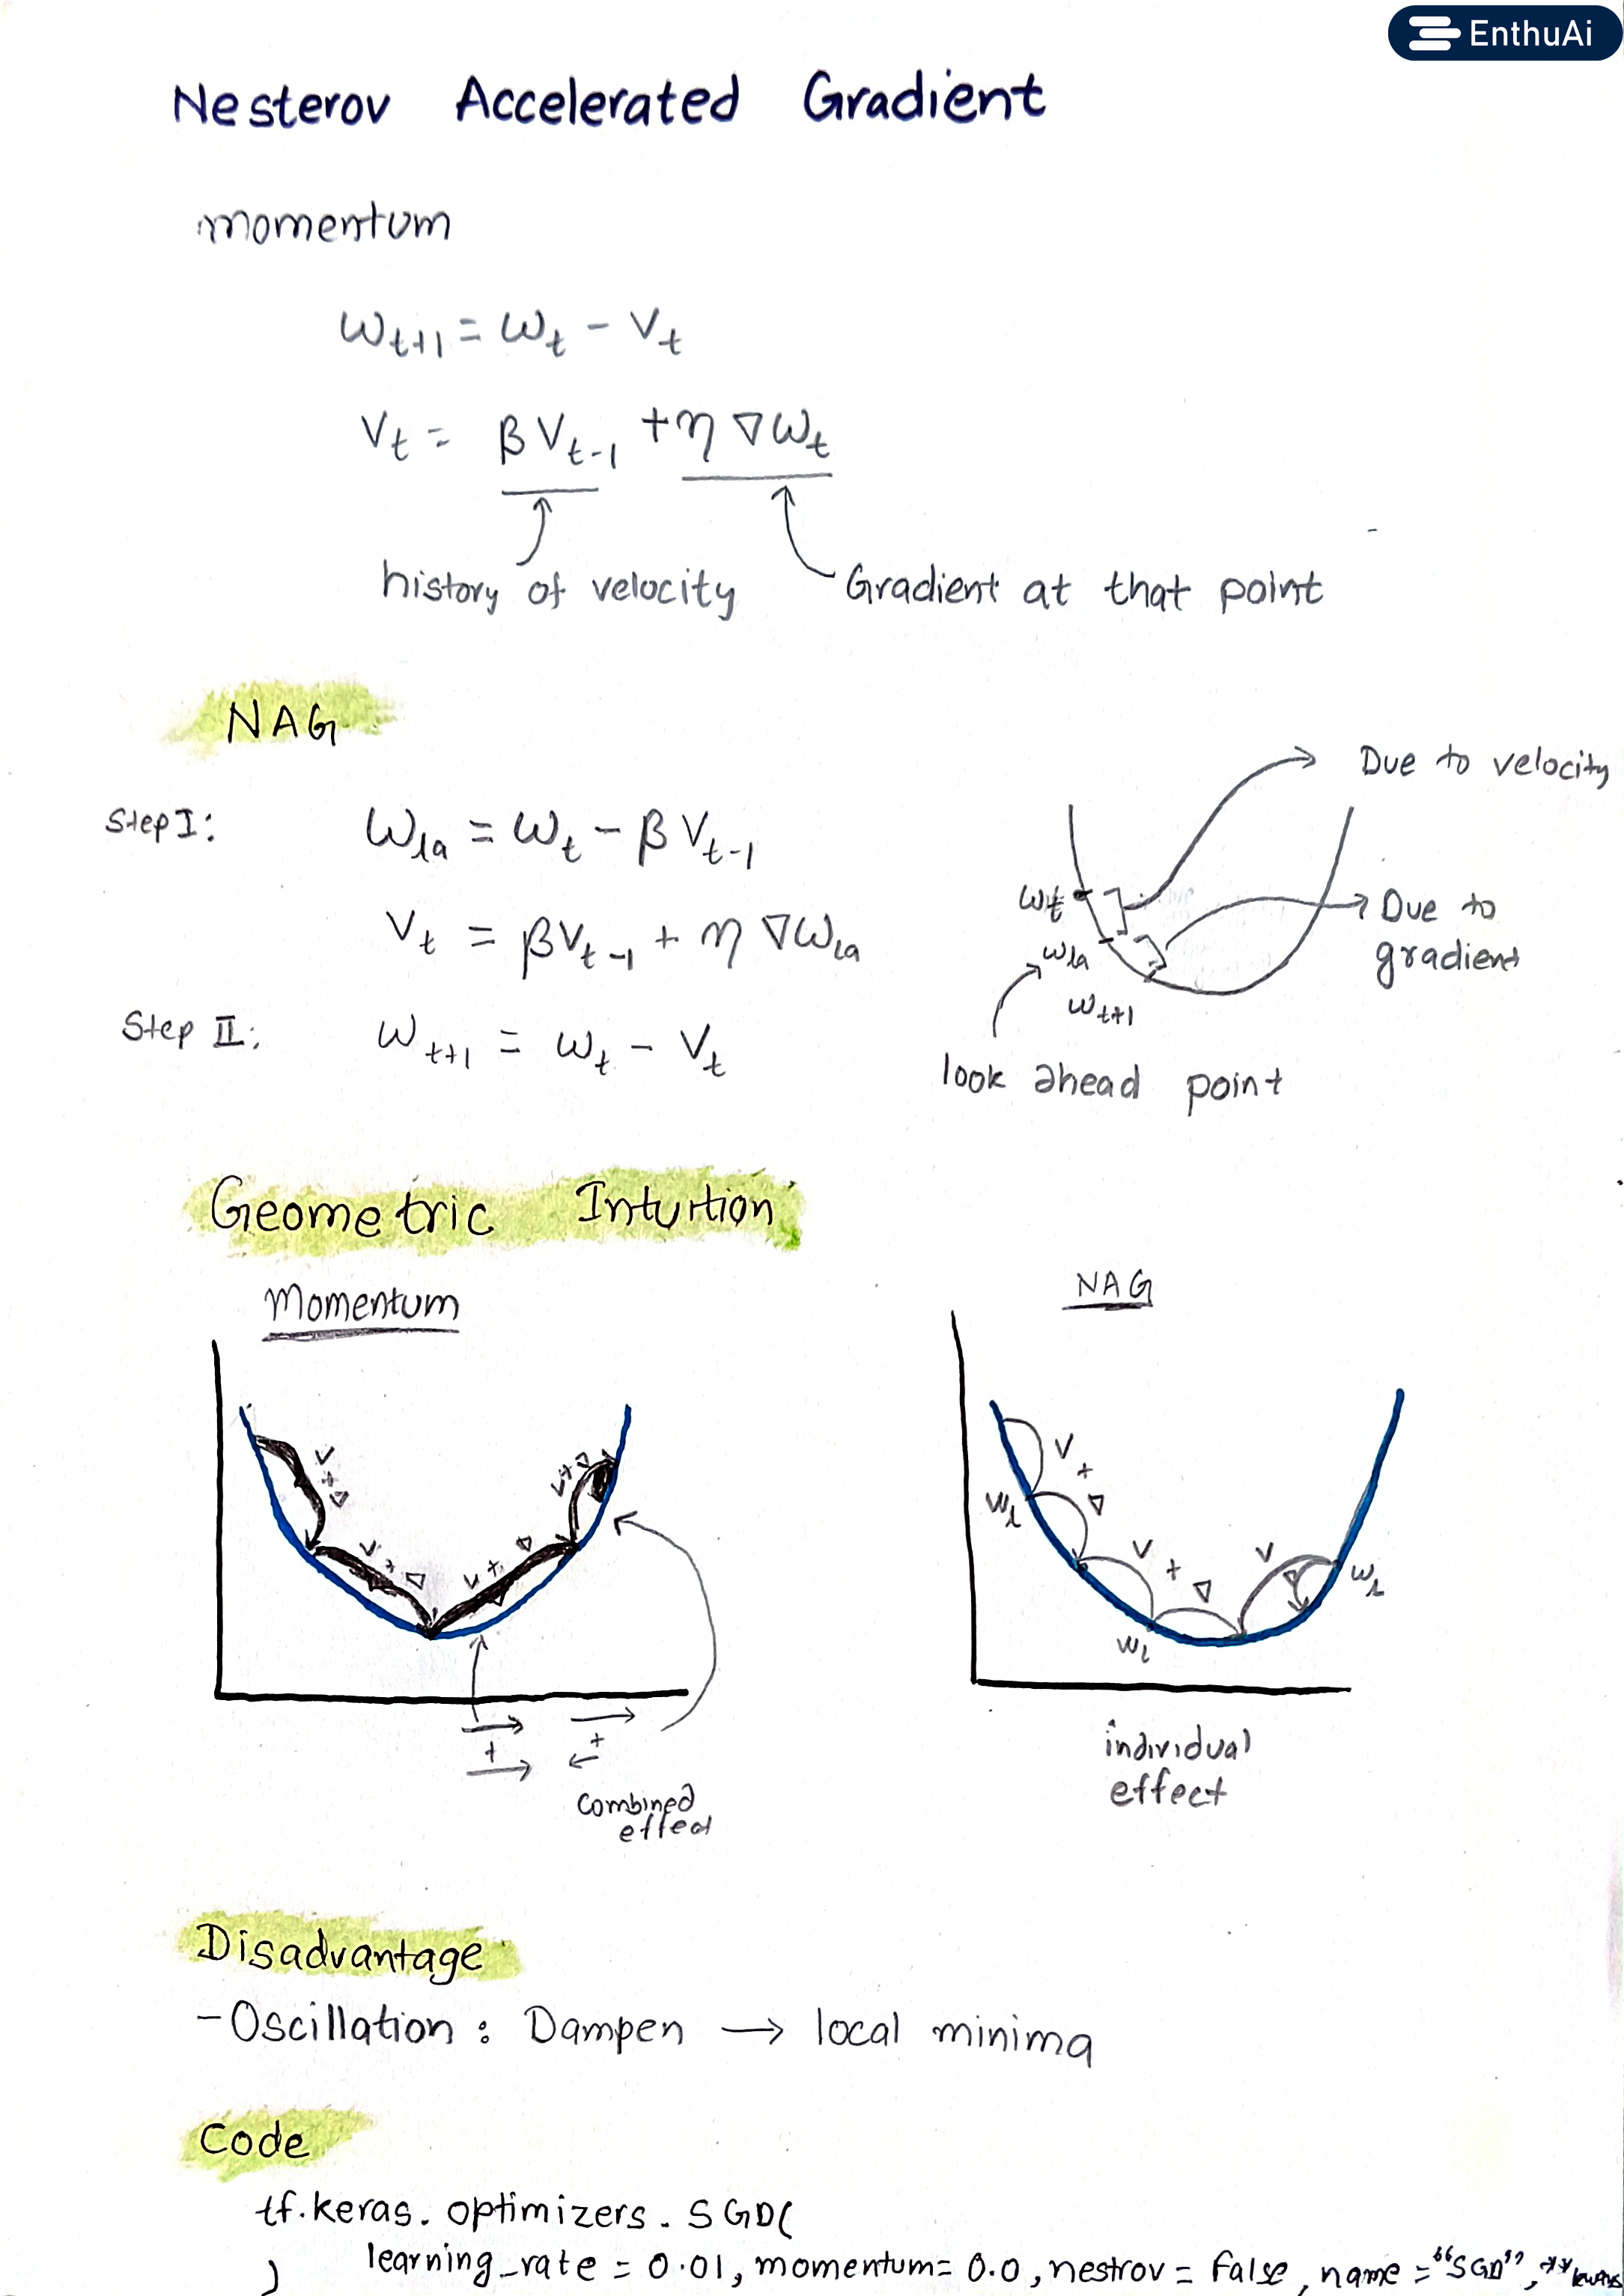 EnthuAi
Nesterov Accelerated Gradient
momentum
ω_{t+1} = ω_t - V_t
V_t = βV_{t-1} + η ∇ω_t
history of velocity
Gradient at that point
NAG
Step I: ω_{la} = ω_t - β V_{t-1}
V_t = βV_{t-1} + η ∇ω_{la}
Step II: ω_{t+1} = ω_t - V_t
Due to velocity
ω_t
Due to
gradient
ω_{la}
ω_{t+1}
look ahead point
Geometric Intuition
Momentum
V + ∇
V + ∇
V + ∇
V + ∇
+
+
combined
effect
NAG
V + ∇
w_l
V + ∇
w_l
V
∇
w_l
individual
effect
Disadvantage
- Oscillation : Dampen → local minima
Code
tf.keras.optimizers.SGD(
learning_rate = 0.01, momentum = 0.0, nestrov = False, name = "SGD", **kwargs
)